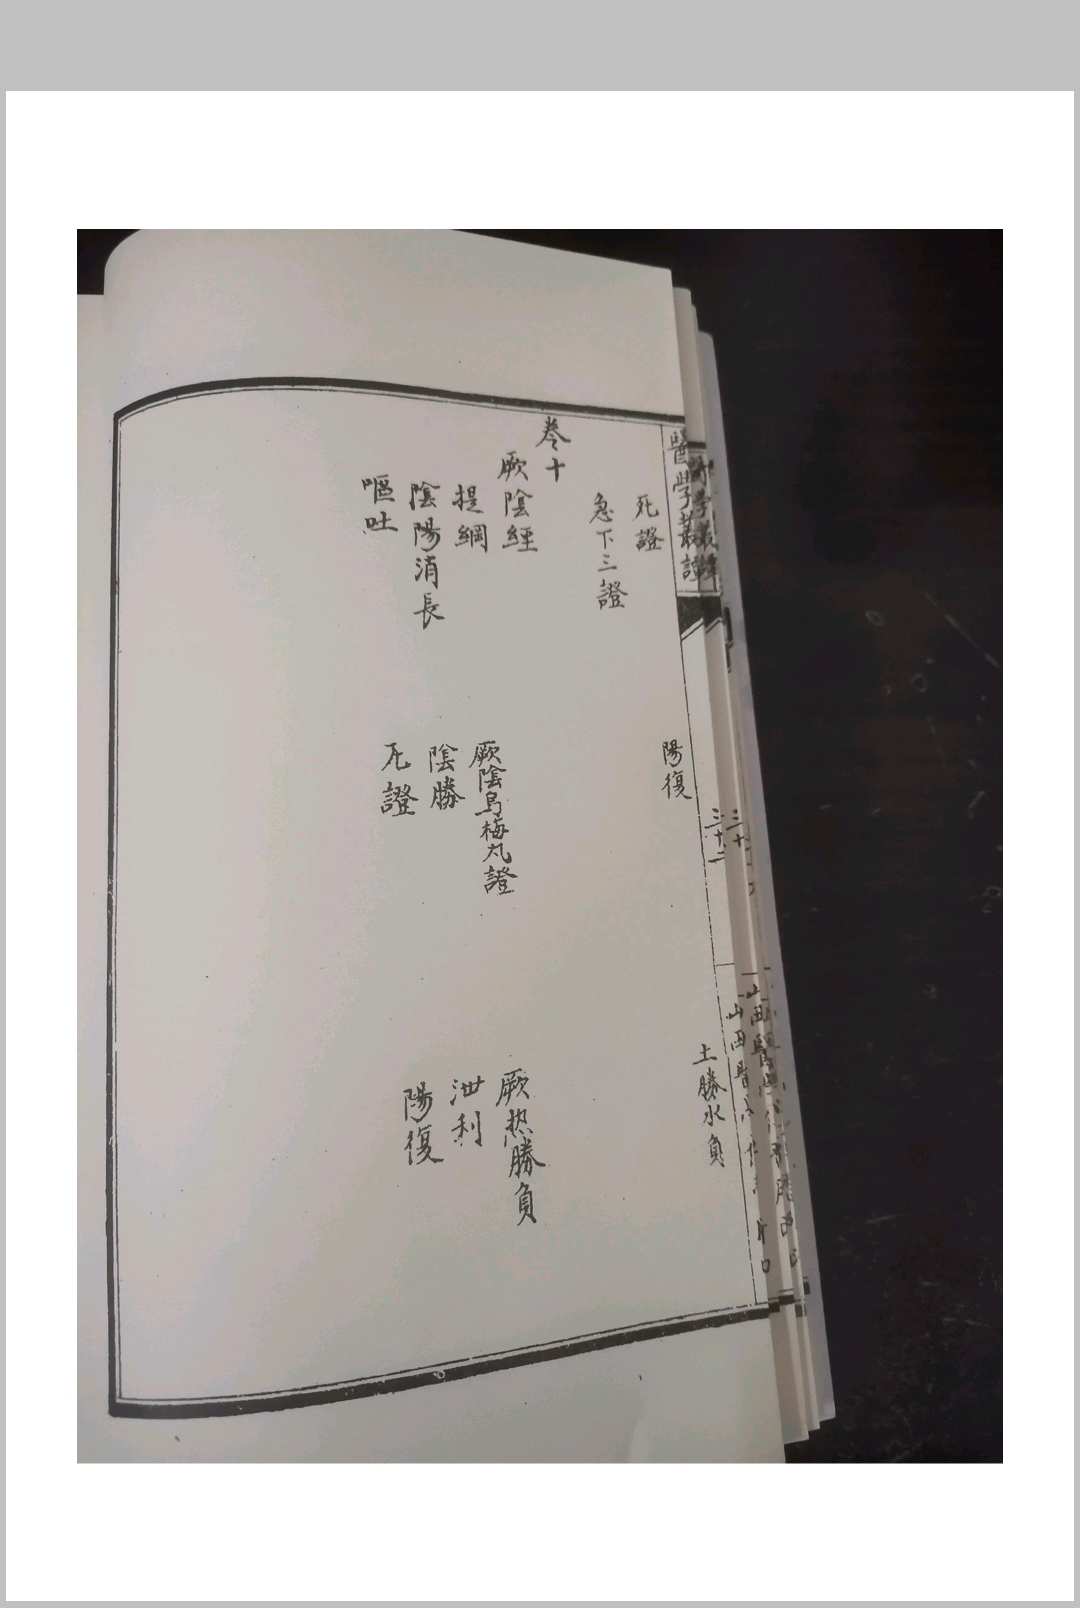 醫學叢譚
三十二
死證
陽復
土勝水負
急下三證
卷十
厥陰經
提綱
厥陰烏梅丸證
厥热勝負
陰陽消長
陰勝
泄利
嘔吐
死證
陽復
三十
山西醫